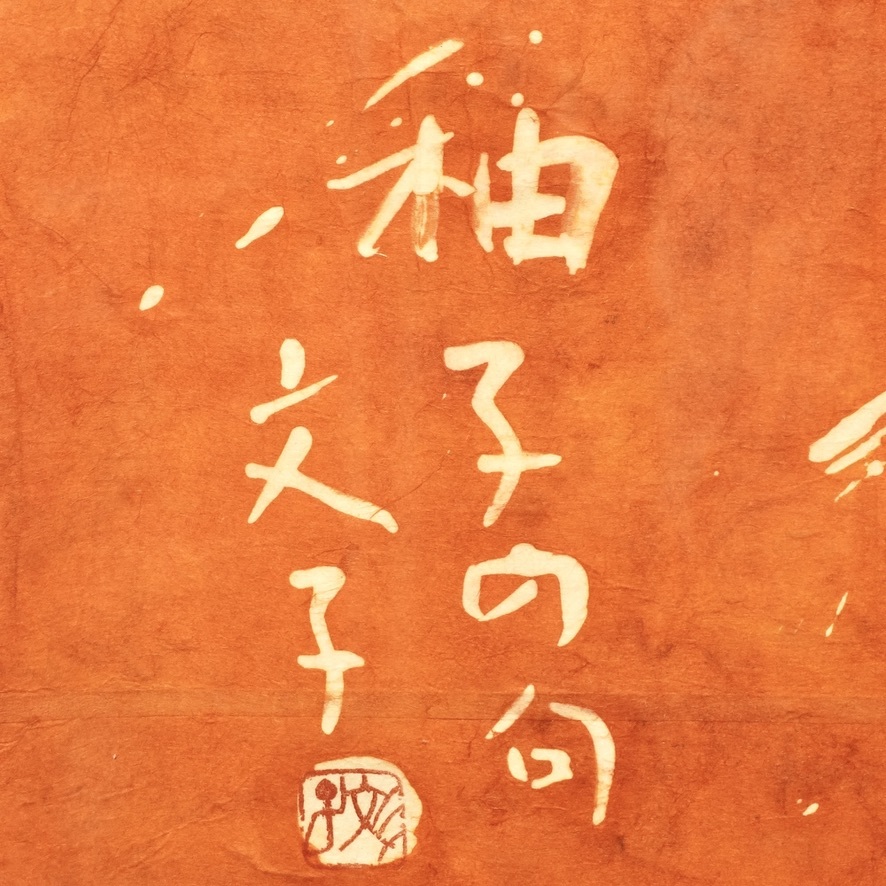 柚子の句
文子